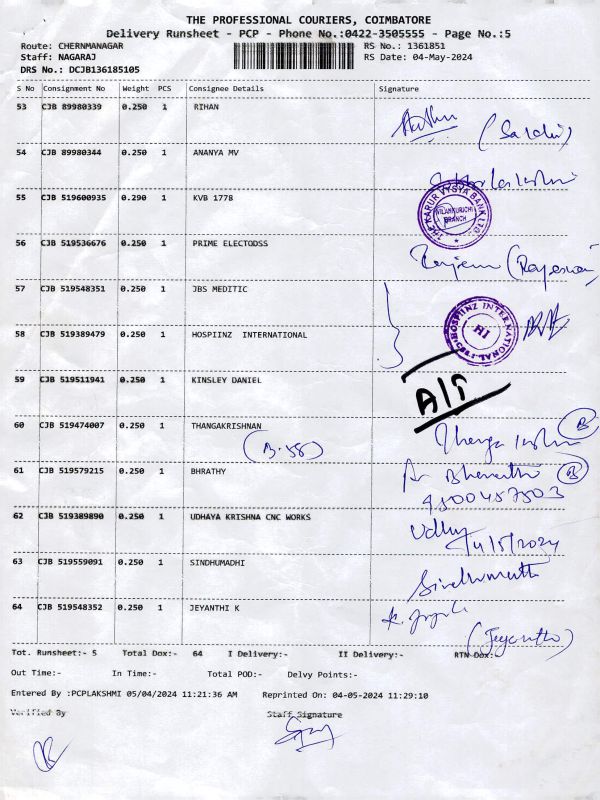 THE PROFESSIONAL COURIERS, COIMBATORE
Delivery Runsheet - PCP - Phone No.:0422-3505555 - Page No.:5
Route: CHERNMANAGAR RS No.: 1361851
Staff: NAGARAJ RS Date: 04-May-2024
DRS No.: DCJB136185105
S No Consignment No Weight PCS Consignee Details Signature
53 CJB 89980339 0.250 1 RIHAN
54 CJB 89980344 0.250 1 ANANYA MV
55 CJB 519600935 0.290 1 KVB 1778
THE KARUR VYSYA BANK LTD.
VILANKURICHI
BRANCH
56 CJB 519536676 0.250 1 PRIME ELECTODSS
57 CJB 519548351 0.250 1 JBS MEDITIC
58 CJB 519389479 0.250 1 HOSPIINZ INTERNATIONAL
HOSPIINZ INTERNATIONAL
HI
59 CJB 519511941 0.250 1 KINSLEY DANIEL
60 CJB 519474007 0.250 1 THANGAKRISHNAN
B
61 CJB 519579215 0.250 1 BHRATHY
B
9500457503
62 CJB 519389890 0.250 1 UDHAYA KRISHNA CNC WORKS
Udhay
4/5/2024
63 CJB 519559091 0.250 1 SINDHUMADHI
64 CJB 519548352 0.250 1 JEYANTHI K
Tot. Runsheet:- 5 Total Dox:- 64 I Delivery:- II Delivery:- RTN Dox:-
Out Time:- In Time:- Total POD:- Delvy Points:-
Entered By :PCPLAKSHMI 05/04/2024 11:21:36 AM Reprinted On: 04-05-2024 11:29:10
Verified By Staff Signature